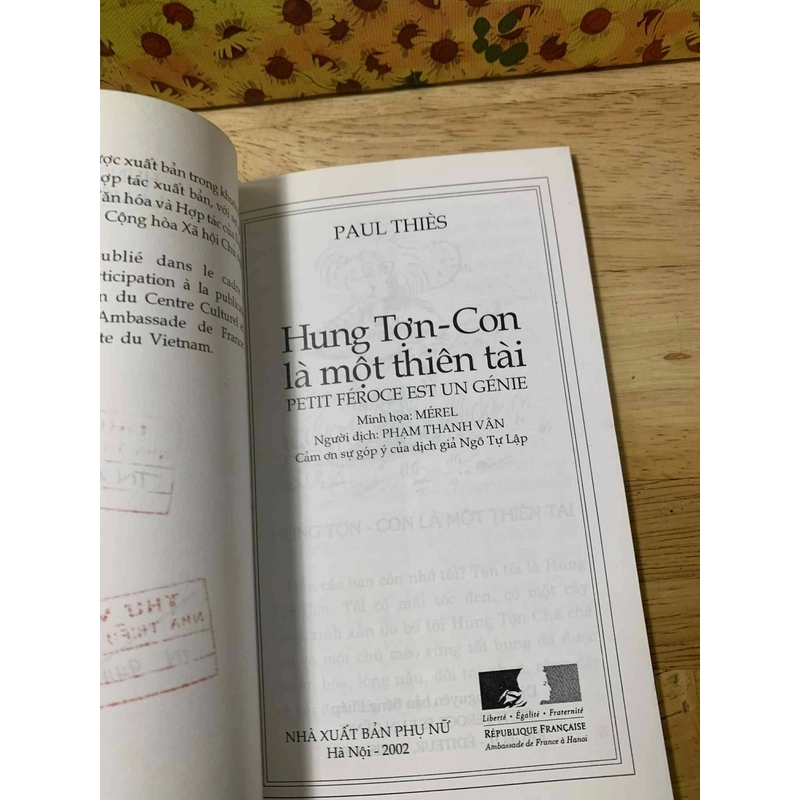 ược xuất bản trong khuôn
ợp tác xuất bản, với sự
ăn hóa và Hợp tác của
Cộng hòa Xã hội Chủ
ublié dans le cadre
rticipation à la publica
n du Centre Culturel et
Ambassade de France
te du Vietnam.
PAUL THIÈS
Hung Tợn-Con
là một thiên tài
PETIT FÉROCE EST UN GÉNIE
Minh họa: MÉREL
Người dịch: PHẠM THANH VÂN
Cảm ơn sự góp ý của dịch giả Ngô Tự Lập
HUNG TỢN - CON LÀ MỘT THIÊN TÀI
THƯ V
NHÀ THIẾU
NHÀ XUẤT BẢN PHỤ NỮ
Hà Nội - 2002
Liberté • Égalité • Fraternité
RÉPUBLIQUE FRANÇAISE
Ambassade de France à Hanoi